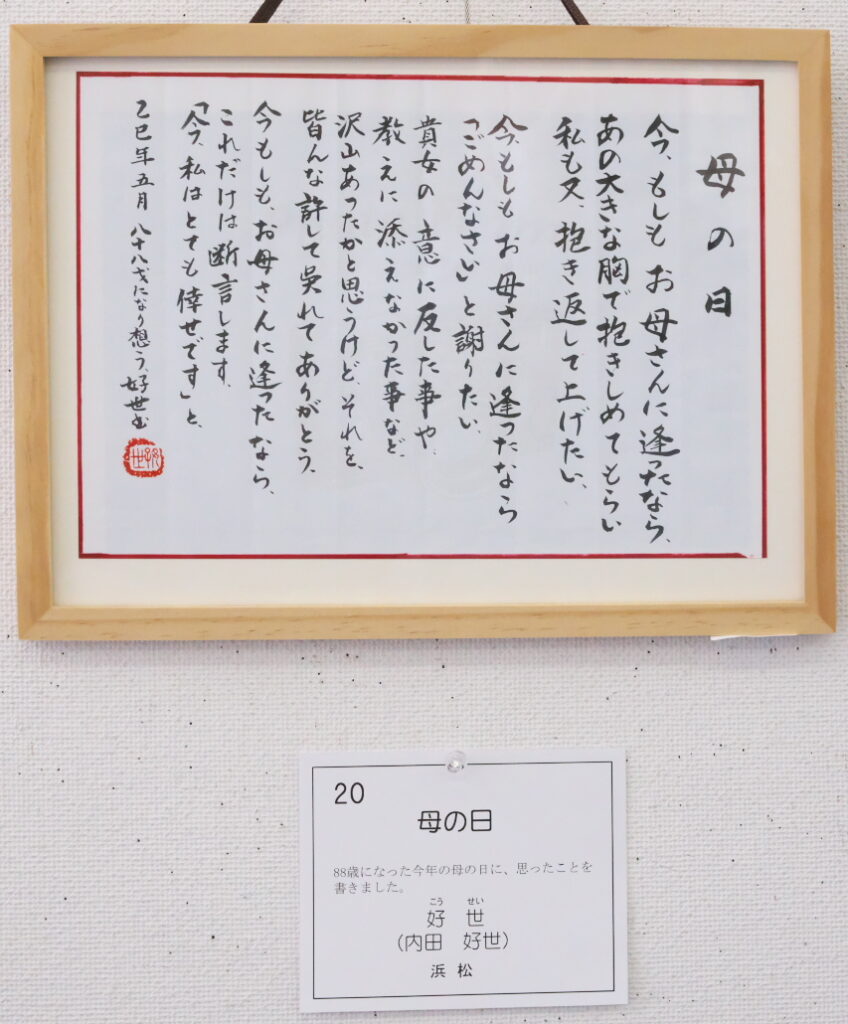 母の日
今、もしも お母さんに逢ったなら、
あの大きな胸で抱きしめてもらい
私も又、抱き返して上げたい、
今、もしも お母さんに逢ったなら
「ごめんなさい」と謝りたい、
貴女の 意に反した事や、
教えに添えなかった事など、
沢山あったかと思うけど、それを、
皆んな許して呉れてありがとう、
今もしも、お母さんに逢ったなら、
これだけは断言します、
「今、私はとても倖せです」と、
乙巳年五月 八十八才になり想う、好世書
好世
20
母の日
88歳になった今年の母の日に、思ったことを
書きました。
こう せい
好 世
(内田 好世)
浜 松